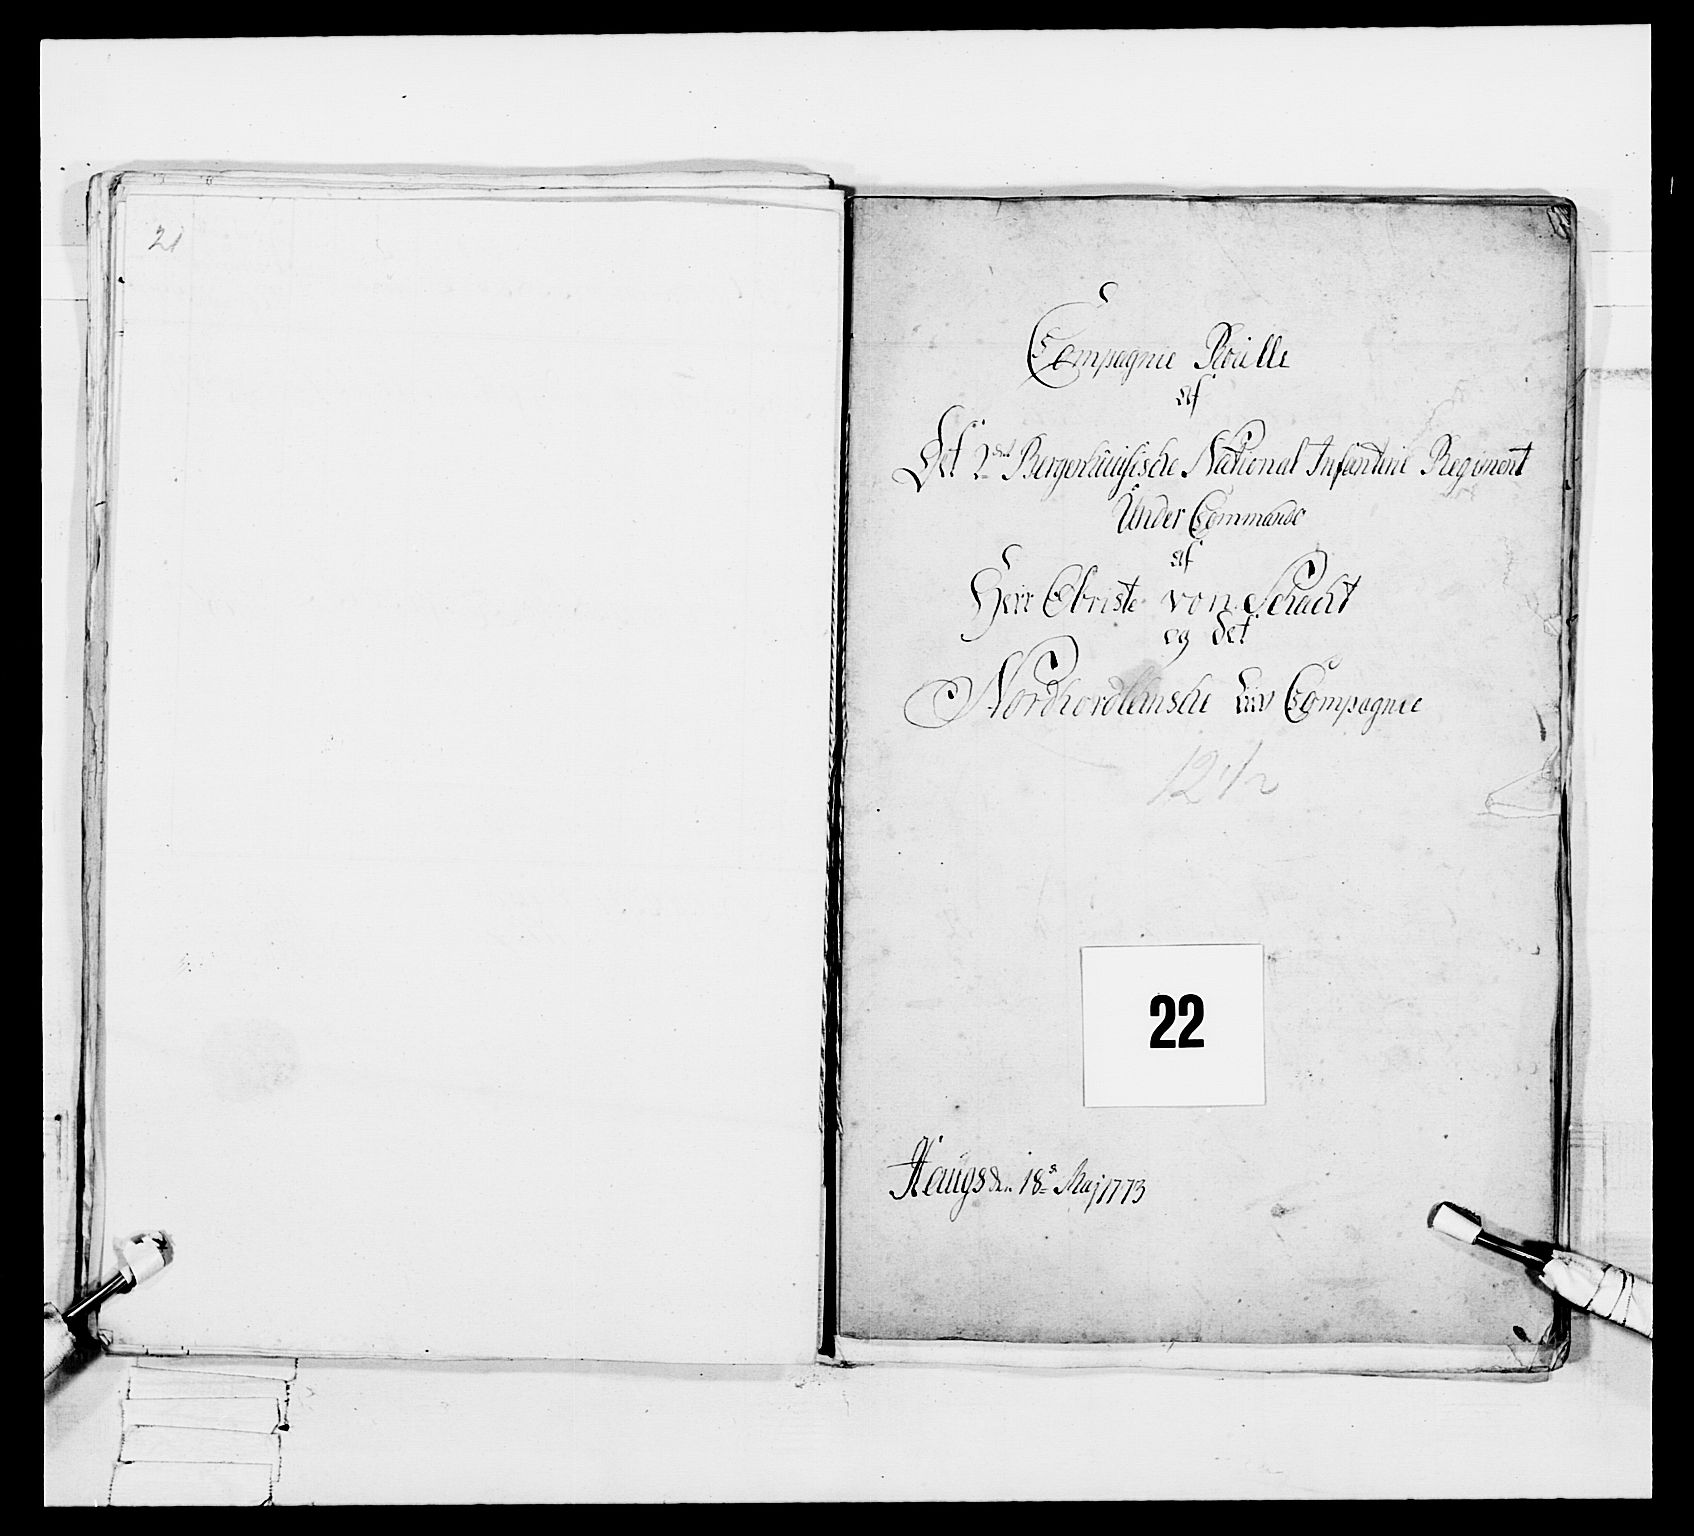 21
Compagnie Roulle
af
Det 2det Bergenhuusische National Infanterie Regiment
Under Commando
af
Herr Obriste von Schacht
og det
Nordhordlehnsche Liv Compagnie
12 1/2
22
Haugs den 18de Maj 1773